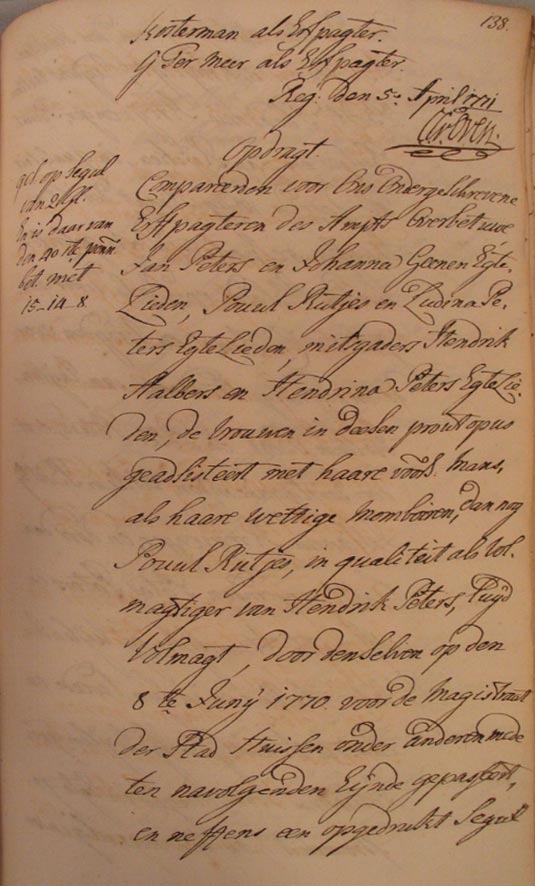 138.
Kosterman als Erfpagter.
G Ter Meer als Erfpagter.
Reg: den 5e April 1771
Opdragt
gesz op Segul
van 2 Aft.
En is daar van
den 90 ste penn:
bet. met
15-14-8
Compareerden voor Ons Ondergeschrevene
Erfpagteren des Ampts Overbetuwe
Jan Peters en Johanna Geenen Egte-
Lieden, Pouul Rutjes en Ludina Pe-
ters EgteLieden, mitsgaders Hendrik
Aalbers en Hendrina Peters EgteLie-
den, de Vrouwen in deesen prout opus
geadsisteert met haare voors. mans,
als haare wettige momboiren, dan nog
Pouul Rutjes, in qualiteit als vol-
magtiger van Hendrik Peters, Luyd
Volmagt, door denselven op den
8ste Juny 1770 voor de Magistraat
der Stad Huissen onder anderen mede
ten navolgenden Eynde gepasseert,
en neffens een opgedrukt Segul